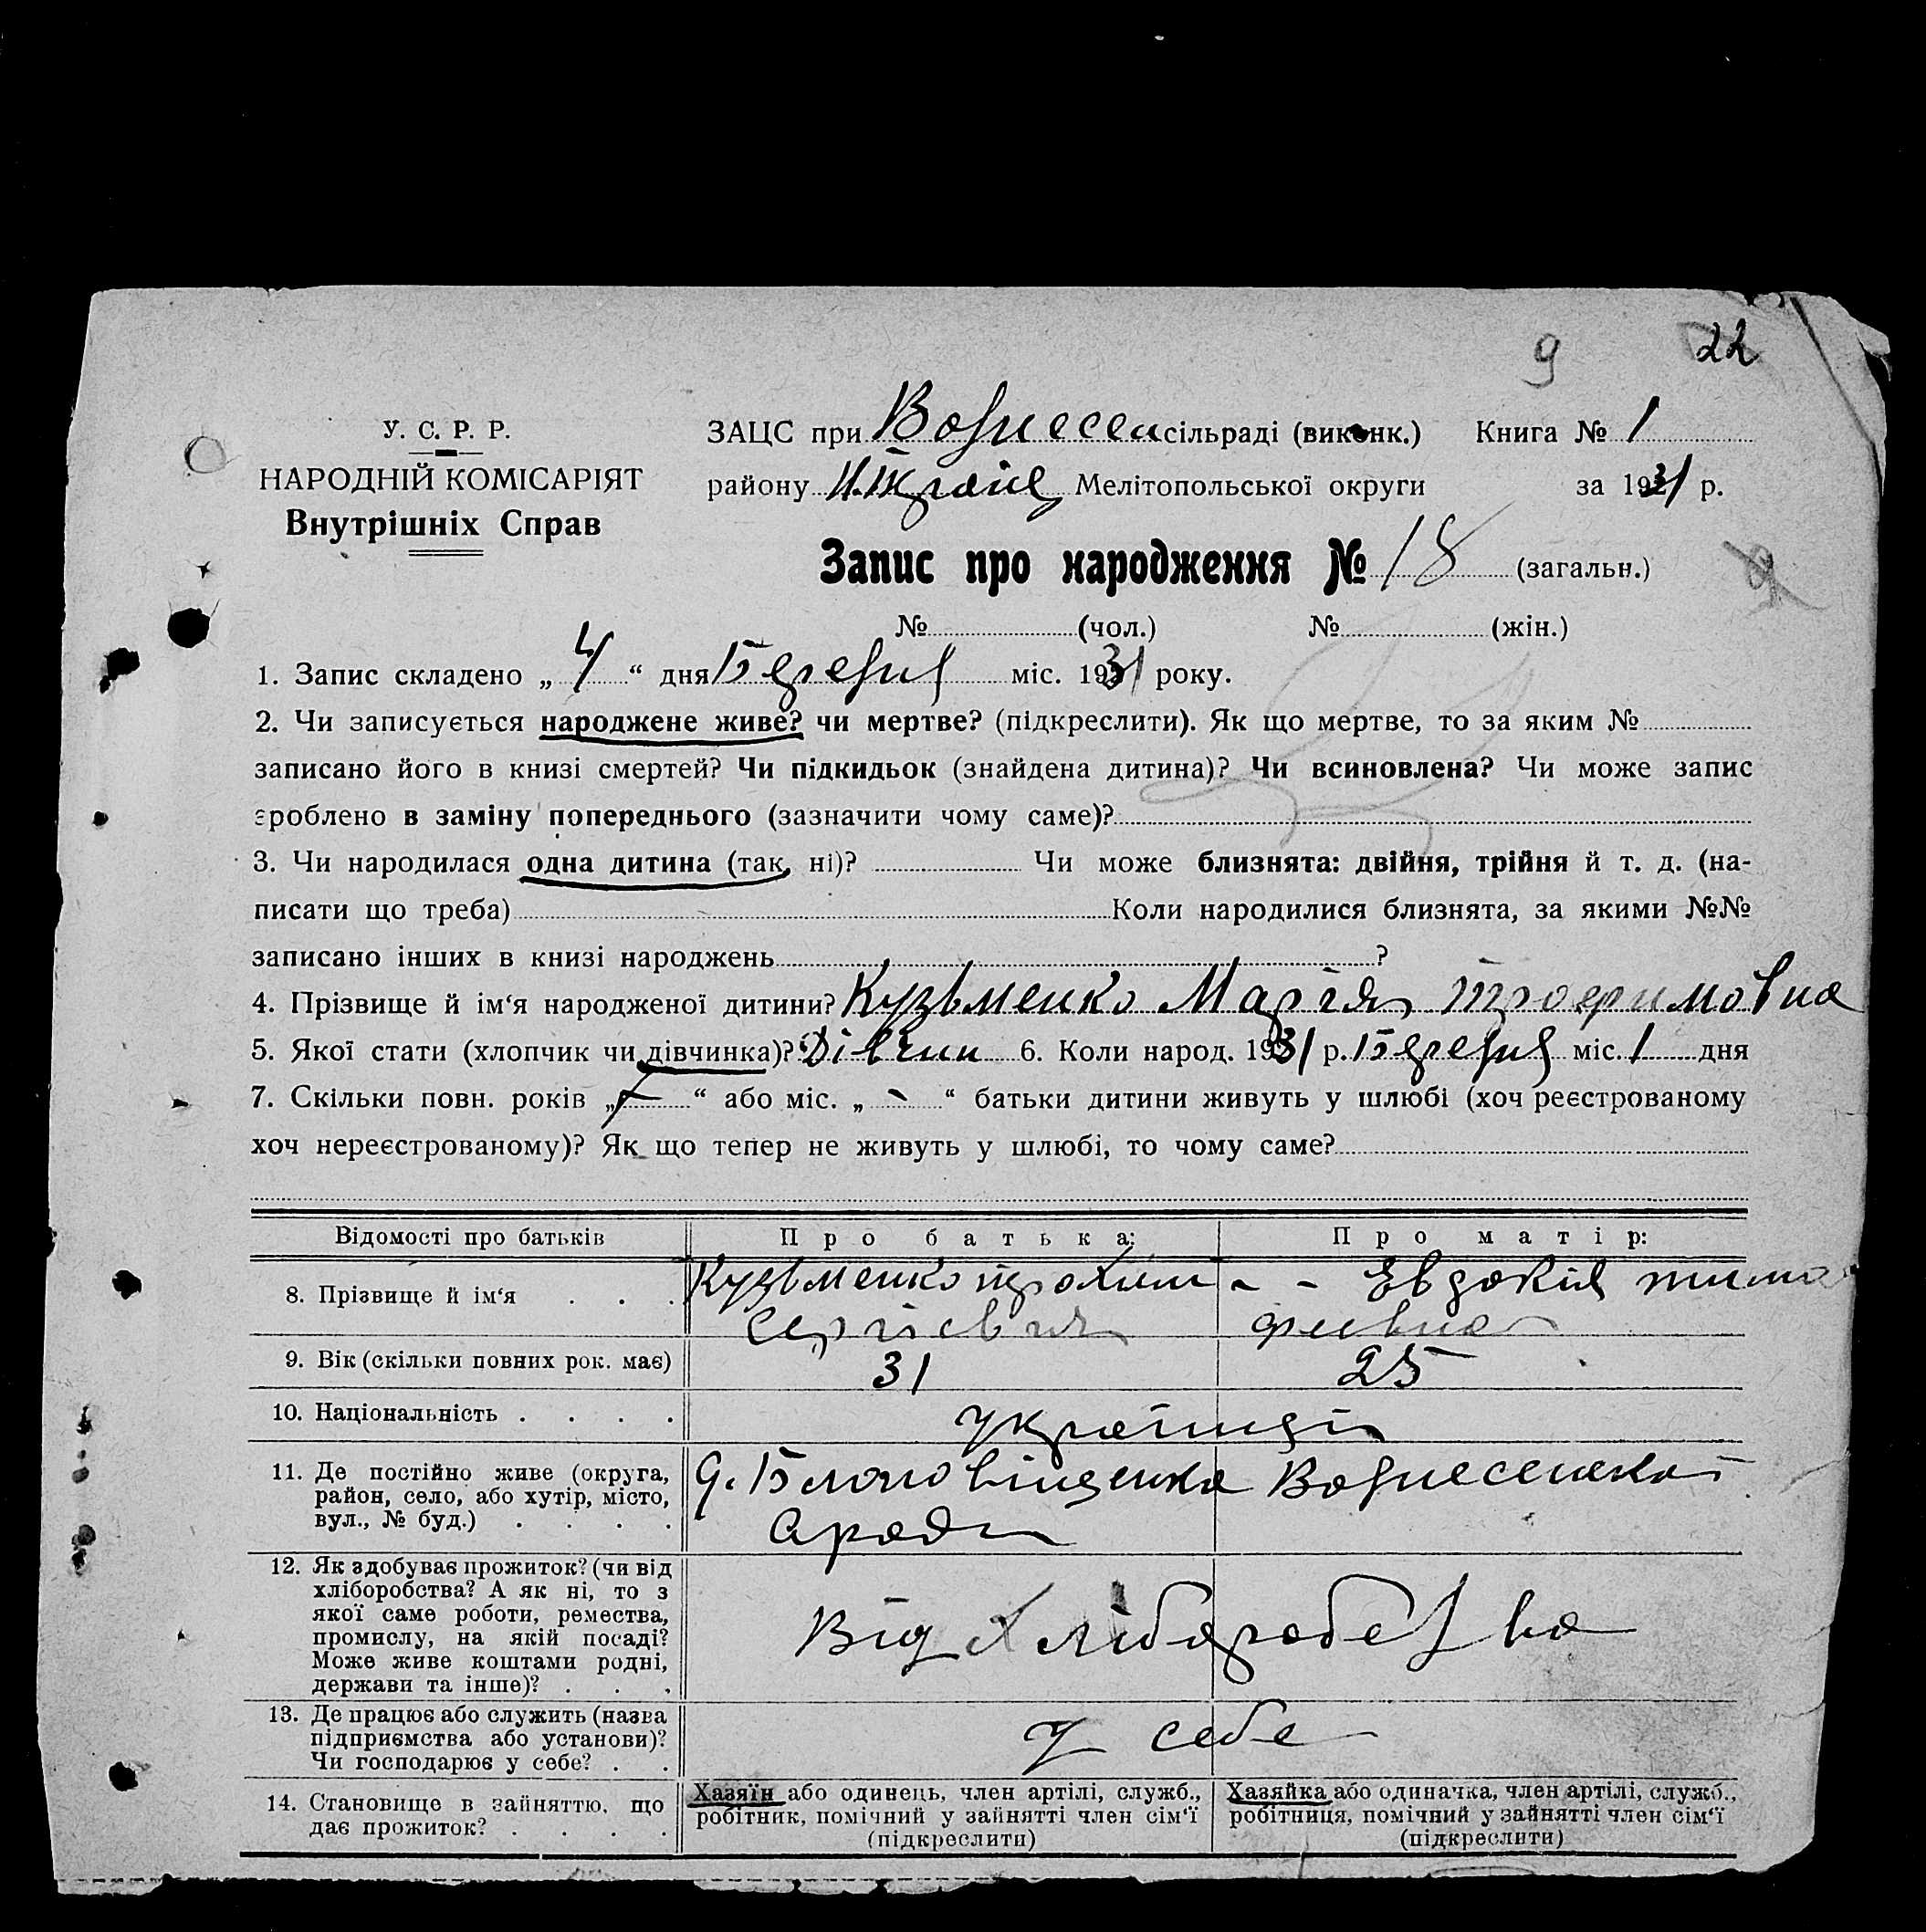 9 22
У. С. Р. Р.
НАРОДНІЙ КОМІСАРІЯТ
Внутрішніх Справ
ЗАЦС при Вознесен сільраді (виконк.) Книга № 1
району Мелітопольської округи за 1931 р.
Запис про народження № 18 (загальн.)
№ (чол.) № (жін.)
1. Запис складено „ 4 “ дня Березня міс. 1931 року.
2. Чи записується народжене живе? чи мертве? (підкреслити). Як що мертве, то за яким №
записано його в книзі смертей? Чи підкидьок (знайдена дитина)? Чи всиновлена? Чи може запис
зроблено в заміну попереднього (зазначити чому саме)?
3. Чи народилася одна дитина (так, ні)? Чи може близнята: двійня, трійня й т. д. (на-
писати що треба) Коли народилися близнята, за якими №№
записано інших в книзі народжень ?
4. Прізвище й ім‘я народженої дитини? Кузьменко Марія Трофимовна
5. Якої статі (хлопчик чи дівчинка)? Дівчин 6. Коли народ. 1931 р. Березня міс. 1 дня
7. Скільки повн. років „ — “ або міс. „ - “ батьки дитини живуть у шлюбі (хоч реєстрованому
хоч нереєстрованому)? Як що тепер не живуть у шлюбі, то чому саме?
Відомості про батьків Про батька: Про матір:
8. Прізвище й ім‘я . . . Кузьменко - - Евдокія Тимо
Сергієвич феивна
9. Вік (скільки повних рок. має) 31 25
10. Національність . . . . Українці
11. Де постійно живе (округа,
район, село, або хутір, місто,
вул., № буд.) . . . .
Вознесенської
Сради
12. Як здобуває прожиток? (чи від
хліборобства? А як ні, то з
якої саме роботи, ремества,
промислу, на якій посаді?
Може живе коштами родні,
держави та інше)? . . .
Від Хліборобства
13. Де працює або служить (назва
підприємства або установи)?
Чи господарює у себе? . .
У себе
14. Становище в зайняттю, що
дає прожиток? . . . .
Хазяїн або одинець, член артілі, служб.,
робітник, помічний у зайнятті член сім‘ї
(підкреслити)
Хазяйка або одиначка, член артілі, служб.,
робітниця, помічний у зайнятті член сім‘ї
(підкреслити)